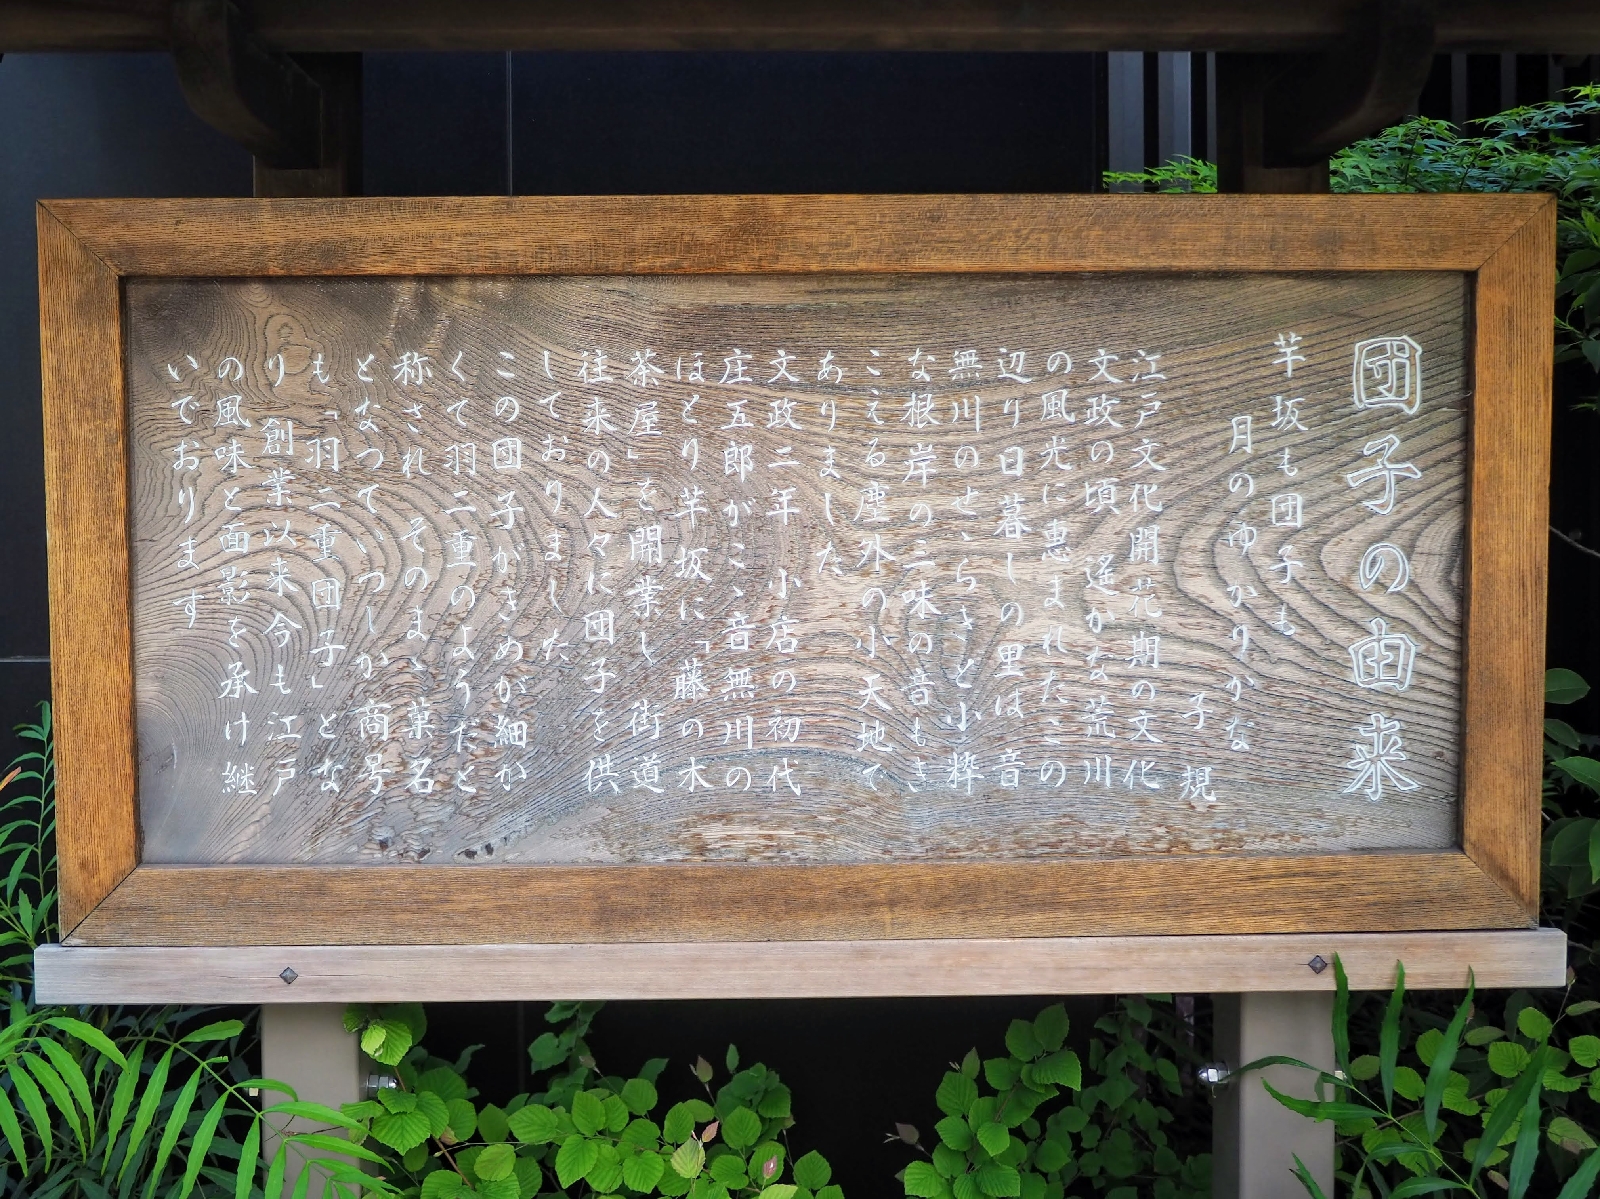 団子の由来
芋坂も団子も
月のゆかりかな
子規
江戸文化開花期の文化
文政の頃 遥かな荒川
の風光に恵まれたこの
辺り日暮しの里は 音
無川のせゝらぎと小粋
な根岸の三味の音もき
こえる塵外の小天地で
ありました
文政二年 小店の初代
庄五郎がこゝ音無川の
ほとり芋坂に「藤の木
茶屋」を開業し 街道
往来の人々に団子を供
しておりました
この団子がきめが細か
くて羽二重のようだと
称され そのまゝ菓名
となっていつしか商号
も「羽二重団子」とな
り 創業以来今も江戸
の風味と面影を承け継
いでおります